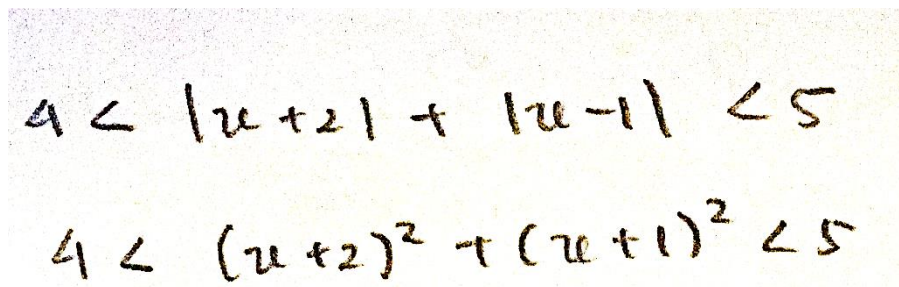 4 < |x+2| + |x-1| < 5
4 < (x+2)² + (x+1)² < 5